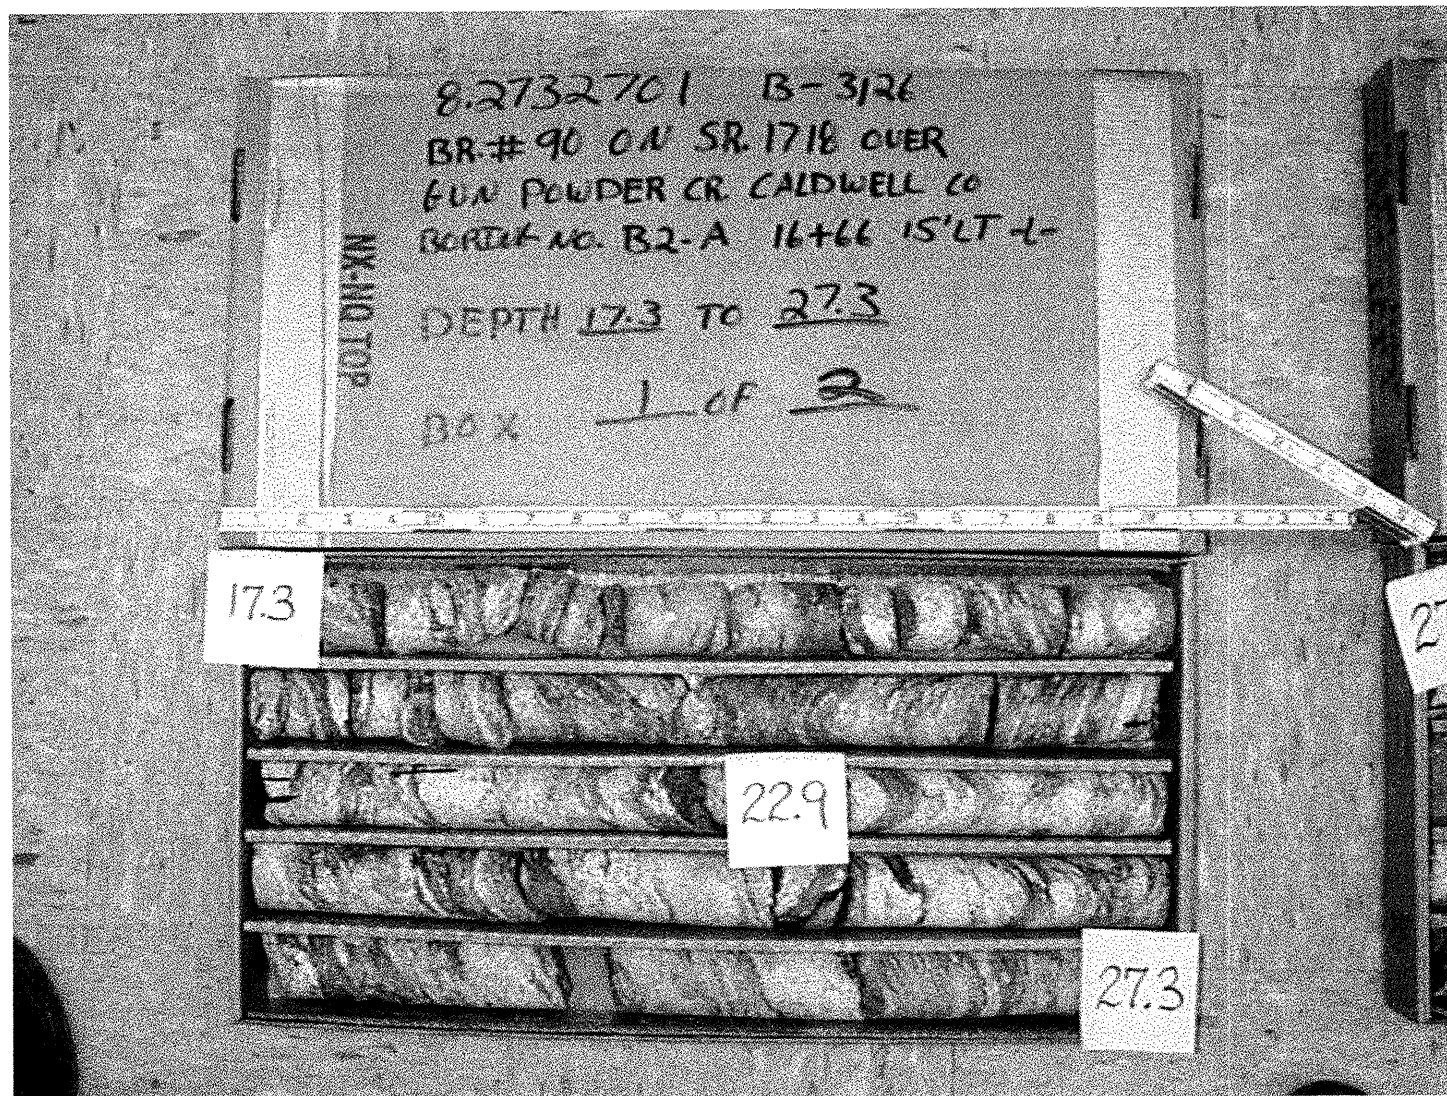 8.2732701 B-3126
BR.#90 ON SR. 1718 OVER
GUN POWDER CR. CALDWELL CO
BORING NO. B2-A 16+66 15'LT -L-
NX-NQ TOP
DEPTH 17.3 TO 27.3
BOX 1 OF 2
17.3
22.9
27.3
27